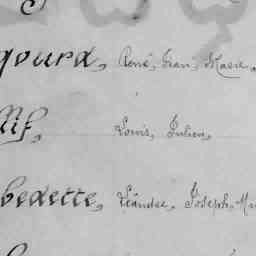 gourd, René, Jean, Marie,
llif, Louis, Julien,
bedette, Léandre, Joseph, Ma